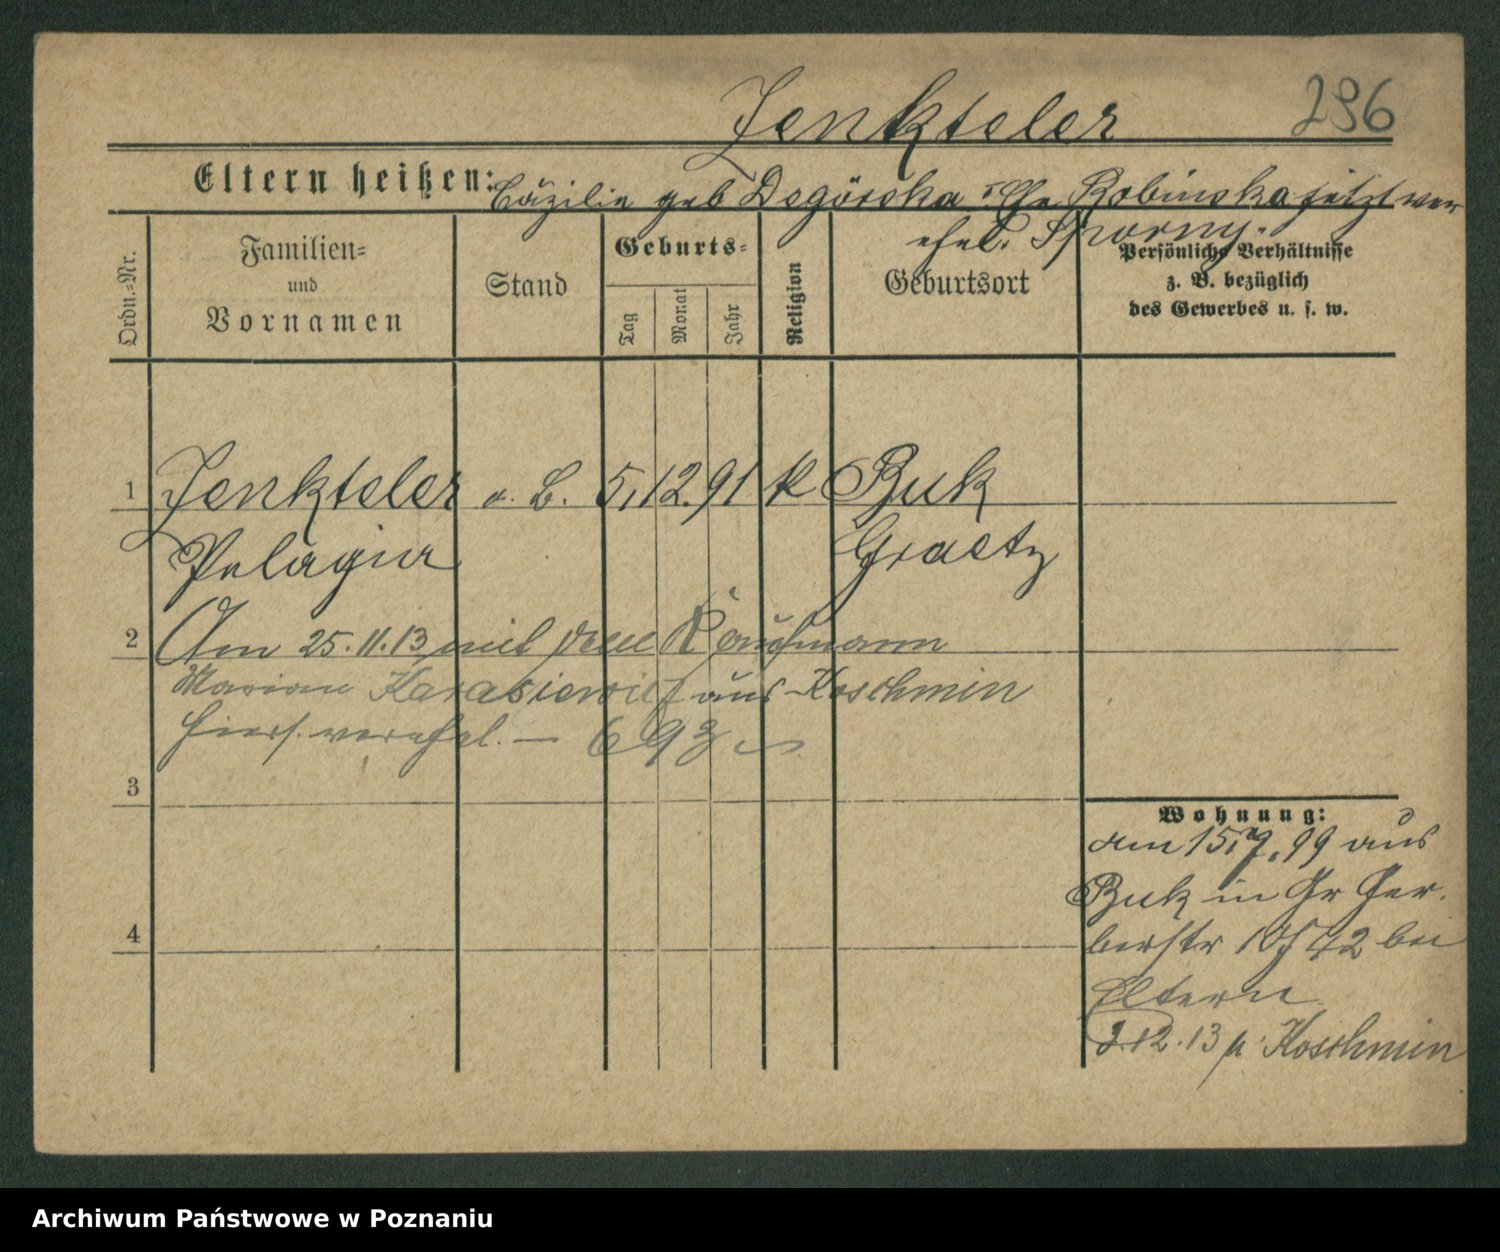 Jenkteler 296
Eltern heißen: Cäzilie geb Degórska Robinska jetzt ver
ehel. Sporny.
Ordn.-Nr.
Familien-
und
Vornamen
Stand
Geburts-
Tag
Monat
Jahr
Religion
Geburtsort
Persönliche Verhältnisse
z. B. bezüglich
des Gewerbes u. s. w.
1 Jenkteler o. B. 5.12.91 k Buk
Pelagia Graetz
2 Am 25.11.13 mit dem Kaufmann
Marian Karasiewicz aus Koschmin
hiers. verehel. — 693
3
Wohnung:
am 15.7.99 aus
Buk in Gr Ger-
berstr 42 bei
4
Eltern
2.12.13 n. Koschmin
Archiwum Państwowe w Poznaniu